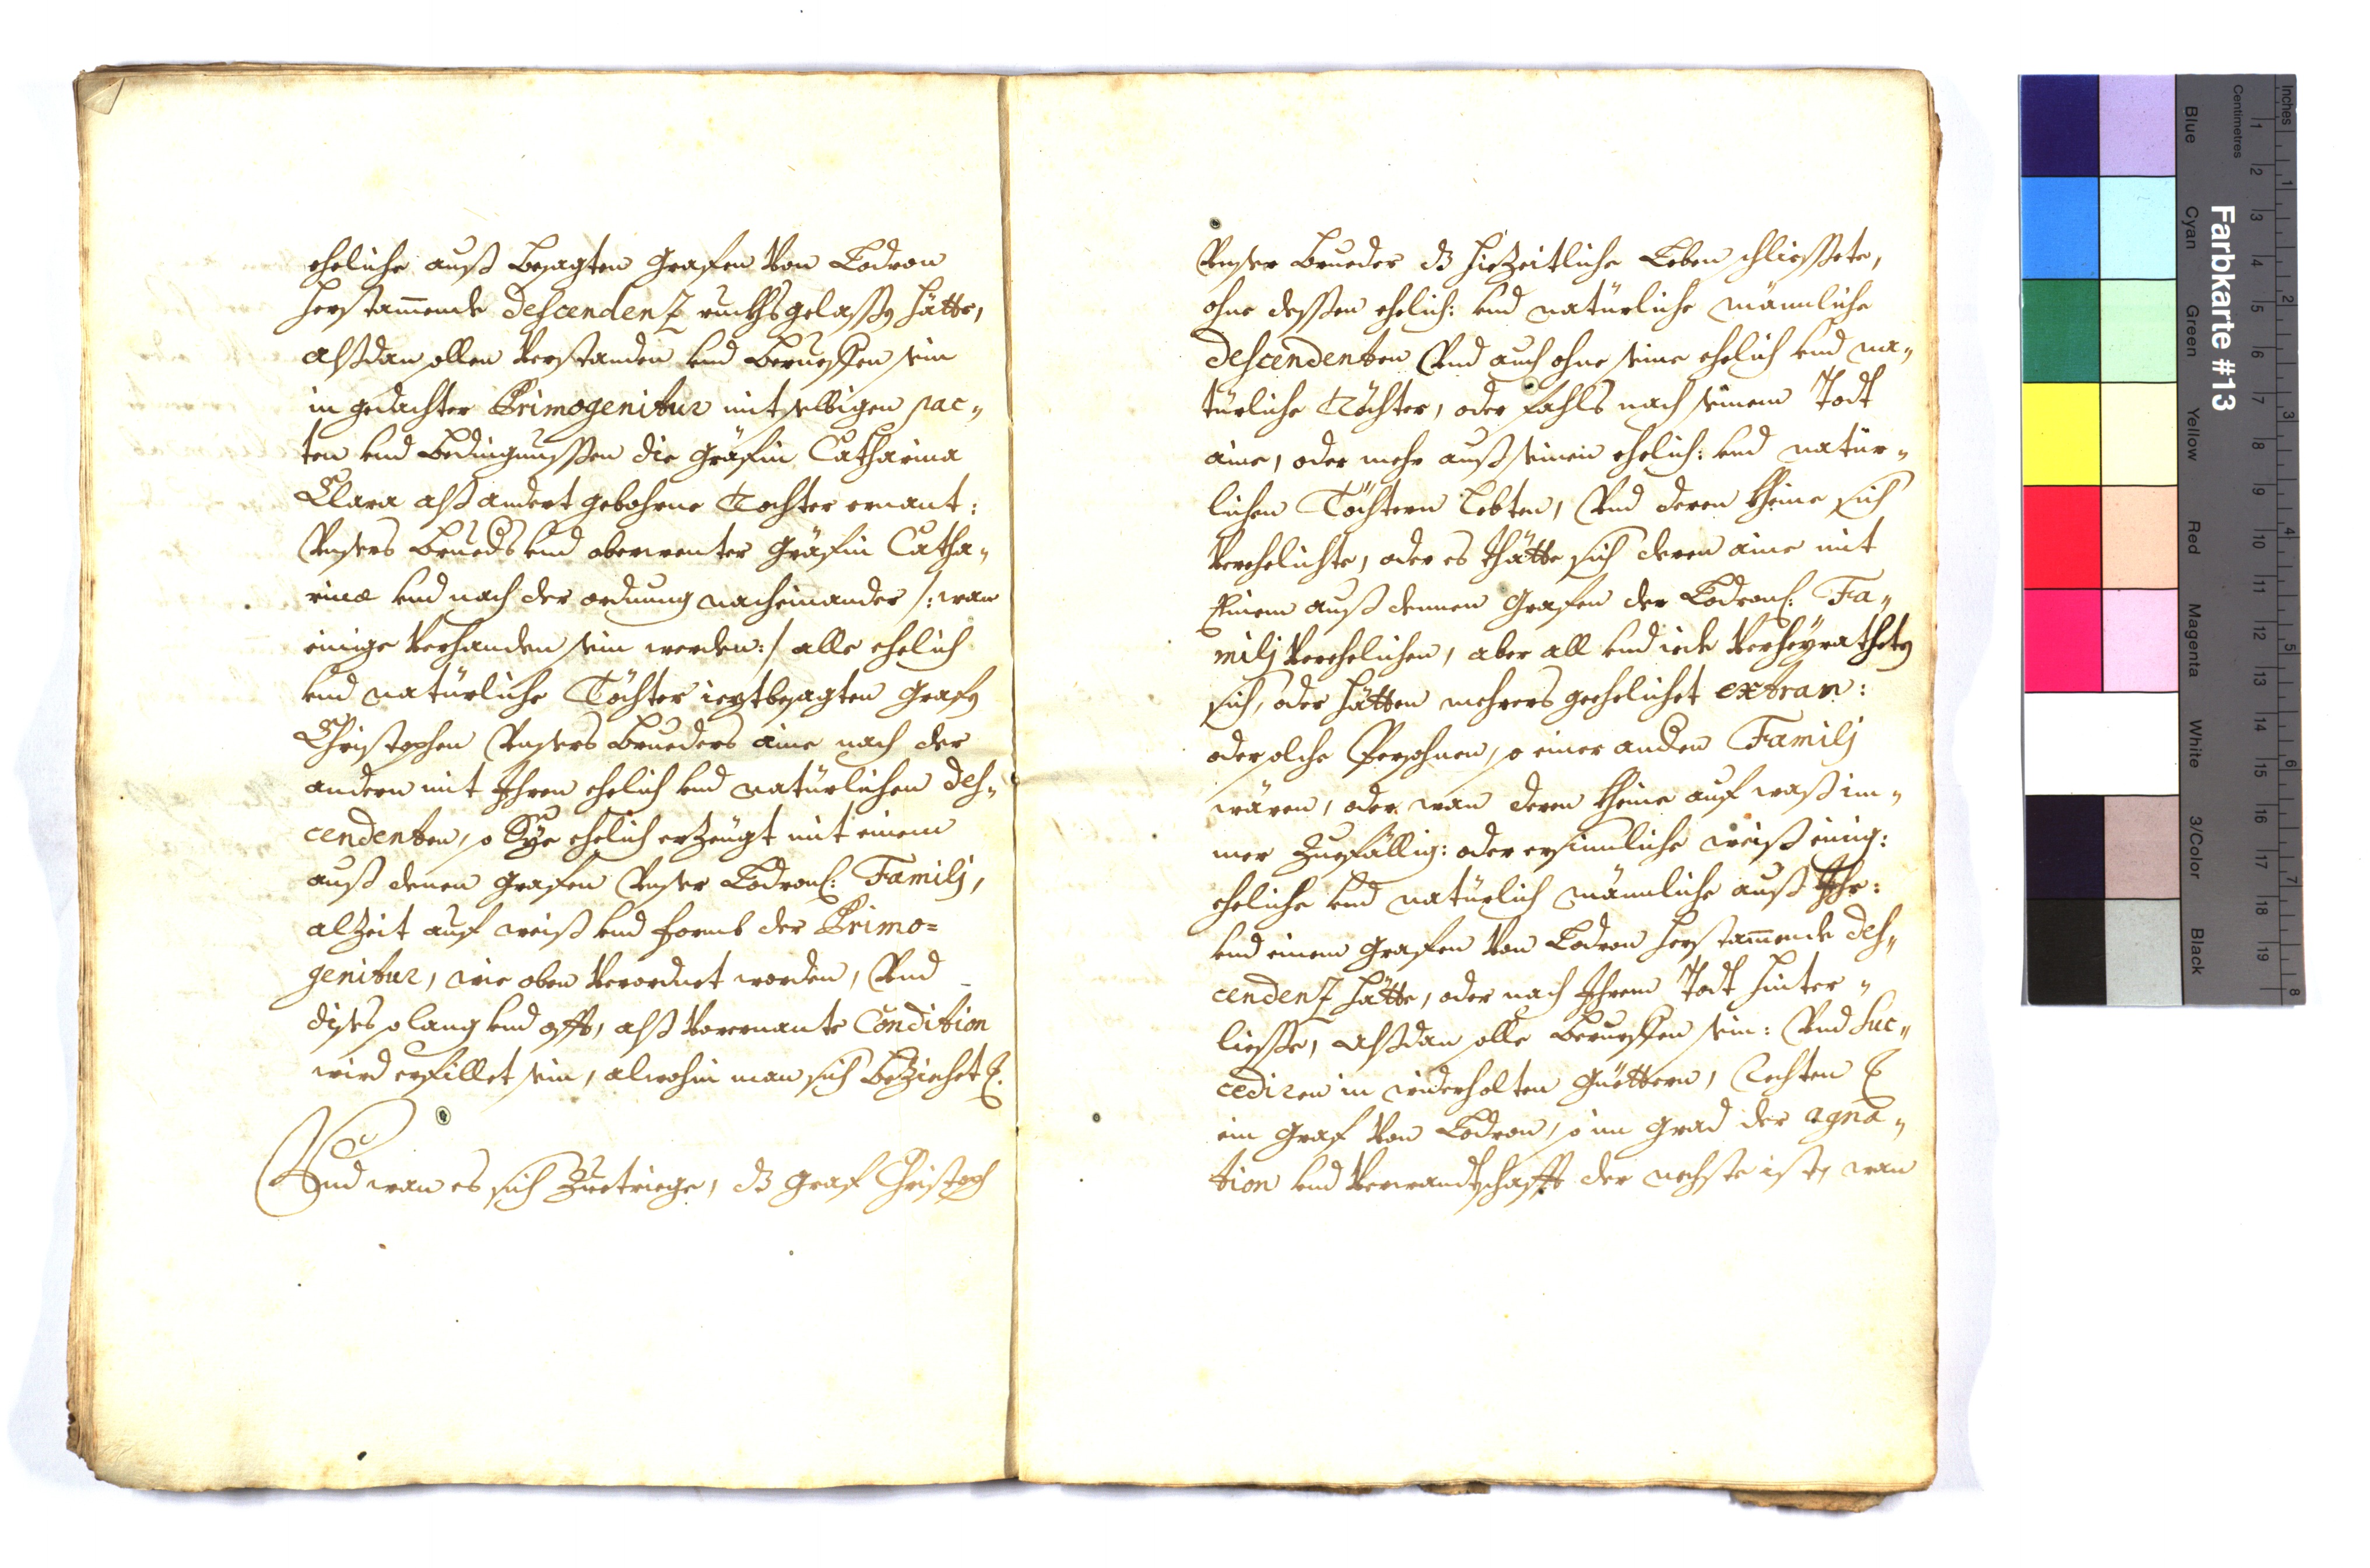 eheliche auß besagten Grafen von Lodron
herstamende descendenz ruckhsgelassen hätte,
alßdan sollen verstanden vnd berueffen sein
in gedachter Primogenitur mit selbigen pac„
ten vnd bedingnussen die Gräfin Catharina
Clara alß andert gebohrne Tochter ernant:
Vnsers brueders vnd oberwenter Gräfin Catha„
rinæ vnd nach der ordnung nacheinander /: wan
einige verhanden sein werden:/ alle ehelich
vnd natürliche Töchter ieztbesagten Grafen
Christophen Vnsers brueders aine nach der
andern mit Ihren ehelich vnd natürlichen des„
cendenten, so Sye ehelich erzeügt mit einem
auß denen Grafen Vnser Lodron: Familj,
alzeit auf weiß vnd formb der Primo=
genitur, wie oben verordnet worden, Vnd
dises so lang vnd offt, alß vorernante Condition
wird erfillet sein, alwohin man sich beziehet &.
Vnd wan es sich Zuetriege, dz Graf Christoph
Vnser brueder dz hiezeitliche Leben schliessete,
ohne dessen ehelich: vnd natürliche männliche
descendenten Vnd auch ohne seine ehelich vnd na„
türliche Töchter, oder fahls nach seinem Todt
aine, oder mehr auß seinen ehelich: vnd natür„
lichen Töchtern lebten, Vnd deren kheine sich
verehelichte, oder es thätte sich deren aine mit
Einem auß dennen Grafen der Lodron: Fa„
milj verehelichen, aber all vnd iede verheyratheten
sich, oder hätten mehrers geehelichet extran:
oder solche Persohnen, so einer anden Familj
wären, oder wan deren kheine auf waß im„
mer Zuefällig: oder ersinnliche weiß einig:
eheliche vnd natürlich männliche auß Ihr:
vnd einem Grafen von Lodron herstamende des„
cendenz hätte, oder nach Ihrem Todt hinter„
liesse, Alßdan solle berueffen sein: Vnd Suc„
cediren in widerholten Güettern, Rechten &
ein Graf von Lodron, so im Grad der agna„
tion vnd verwandtschafft der nechste ist, wan
Farbkarte #13
Inches 1 2 3 4 5 6 7 8
Centimetres 1 2 3 5 6 7 8 9 10 11 12 13 14 15 16 17 18 19
Blue Cyan Green Yellow Red Magenta White 3/Color Black